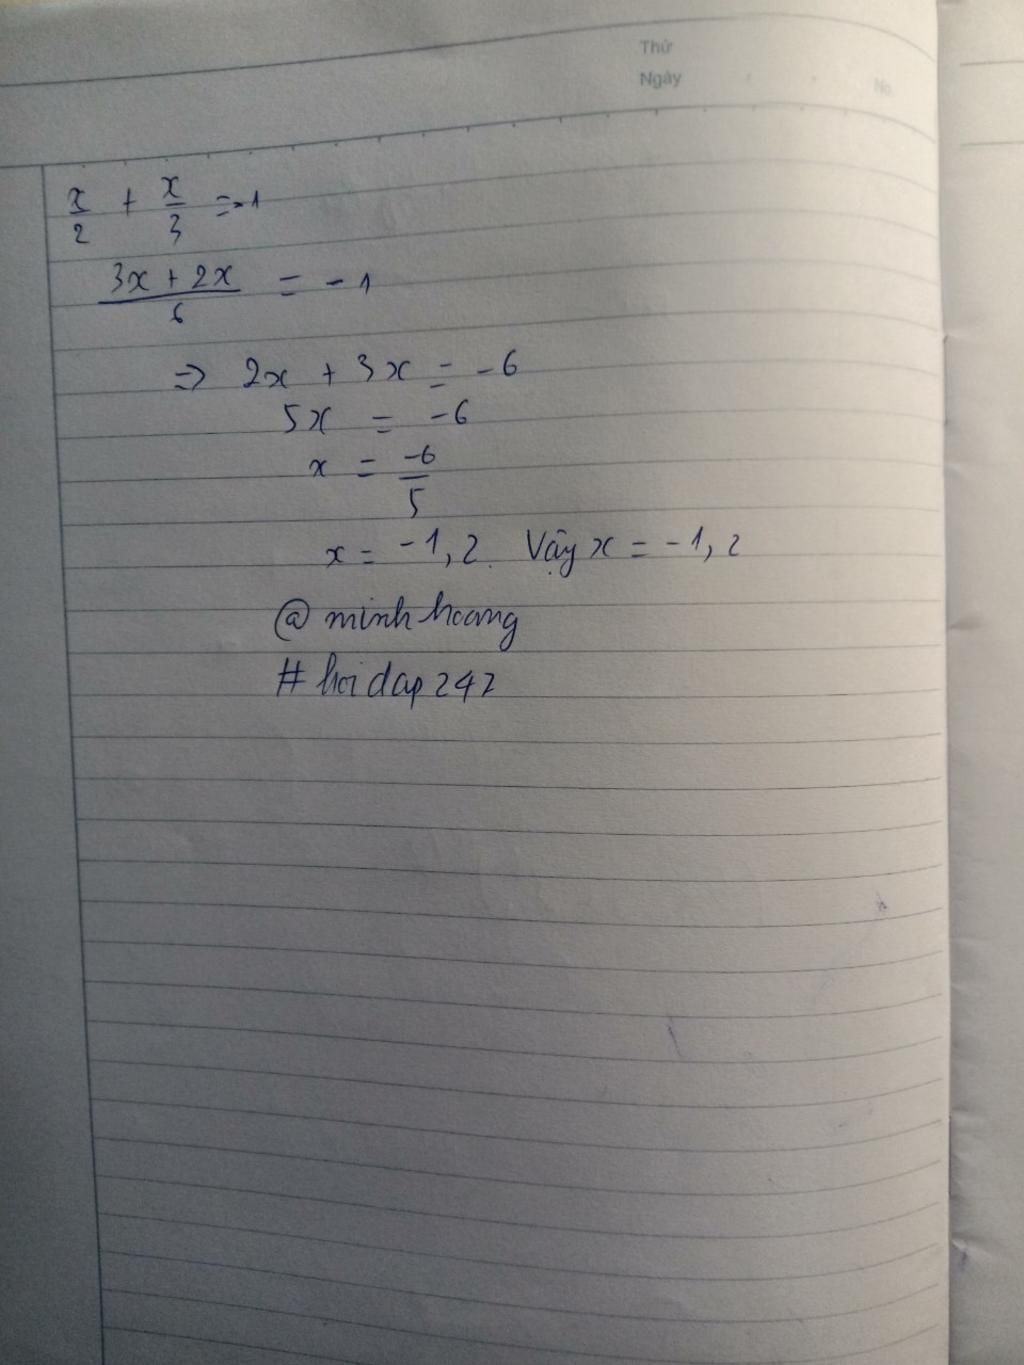 Thứ
Ngày
No.
x/2 + x/3 = -1
(3x + 2x)/6 = -1
=> 2x + 3x = -6
5x = -6
x = -6/5
x = -1,2. Vậy x = -1,2
@minhhoang
#hoidap247